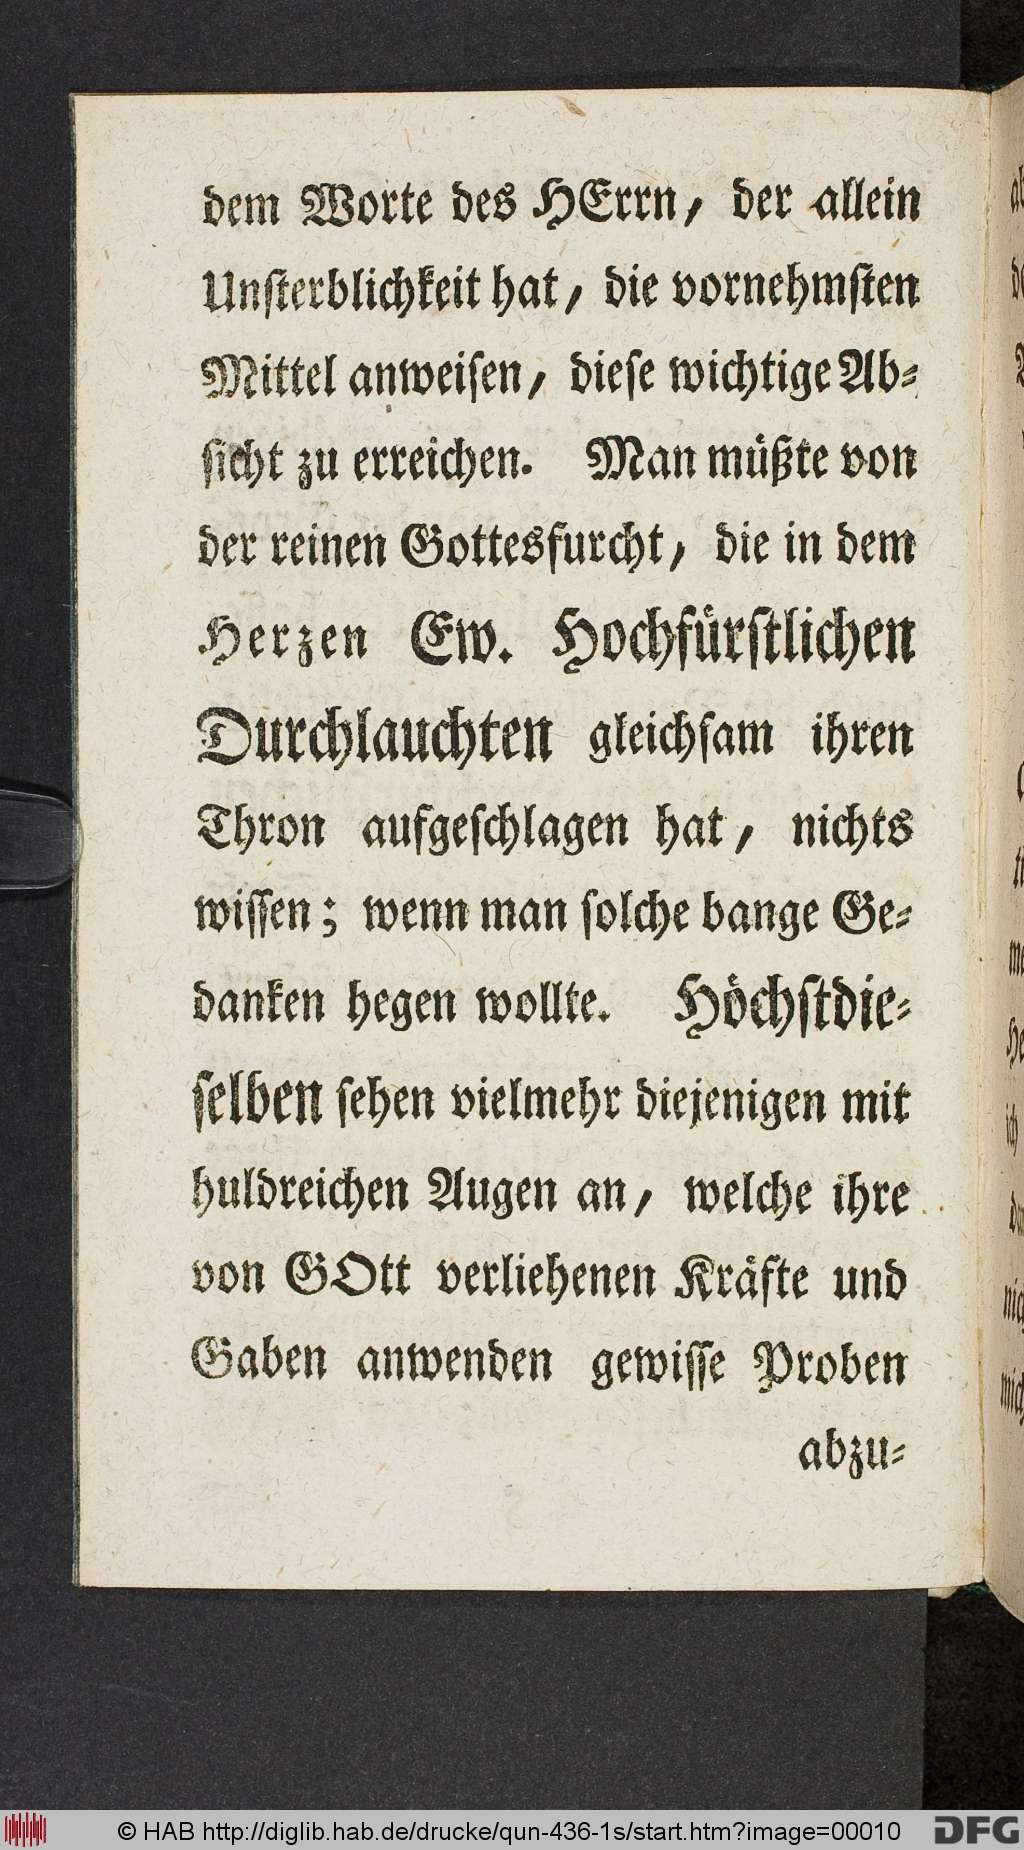 dem Worte des HErrn, der allein
Unsterblichkeit hat, die vornehmsten
Mittel anweisen, diese wichtige Ab-
sicht zu erreichen. Man müßte von
der reinen Gottesfurcht, die in dem
Herzen Ew. Hochfürstlichen
Durchlauchten gleichsam ihren
Thron aufgeschlagen hat, nichts
wissen; wenn man solche bange Ge-
danken hegen wollte. Höchstdie-
selben sehen vielmehr diejenigen mit
huldreichen Augen an, welche ihre
von GOtt verliehenen Kräfte und
Gaben anwenden gewisse Proben
abzu-
© HAB http://diglib.hab.de/drucke/qun-436-1s/start.htm?image=00010
DFG